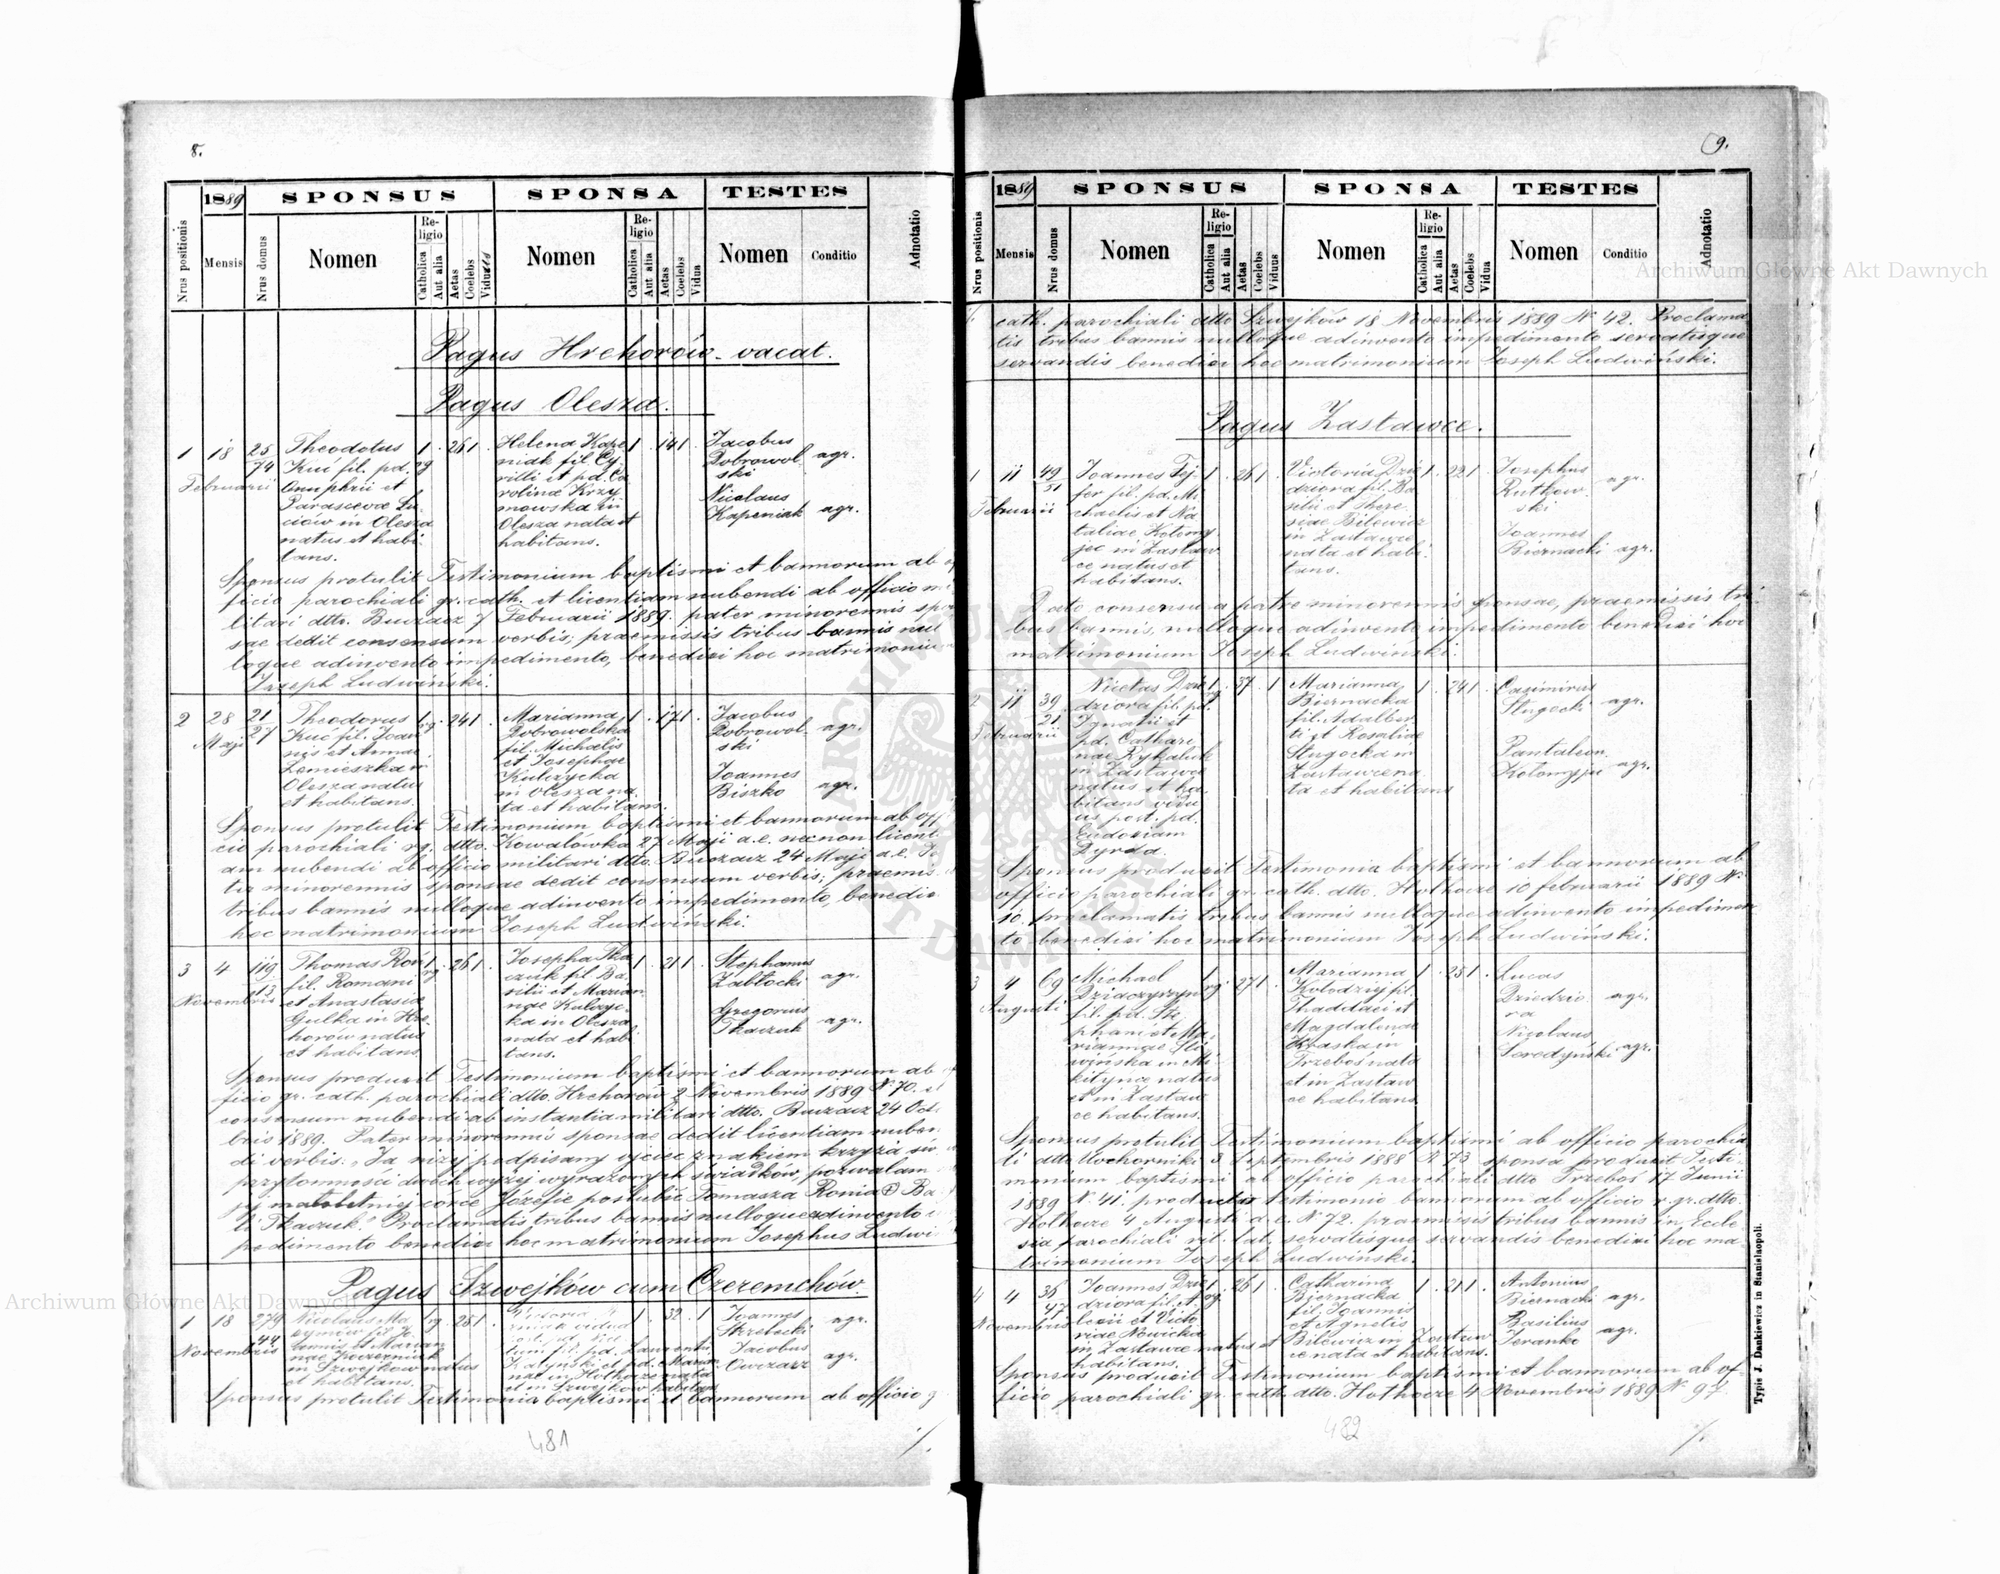 8.
1889
SPONSUS
SPONSA
TESTES
Nrus positionis
Mensis
Nrus domus
Nomen
Religio
Catholica
Aut alia
Aetas
Coelebs
Viduus
Nomen
Religio
Catholica
Aut alia
Aetas
Coelebs
Vidua
Nomen
Conditio
Adnotatio
Pagus Hrehorów vacat.
Pagus Olesza.
1 18 Februarii 25/74
Theodotus
Kuc fil. pd.
Onuphrii et
Parascevae
in Olesza
natus et habi-
tans.
1 rg. 26 1
Helena Kape
niak fil. Cy-
rilli et pd. Ca
rolinae Krzy
mowska in
Olesza nata et
habitans.
1 . 19 1 .
Jacobus
Dobrowol
ski
agr.
Nicolaus
Kapeniak
agr.
Sponsus protulit Testimonium baptismi et bannorum ab of
ficio parochiali gr. cath. et licentiam nubendi ab officio mi
litari dtto. Buczacz 7 Februarii 1889. pater minorennis spon
sae dedit consensum verbis; praemissis tribus bannis nul
loque adinvento impedimento, benedixi hoc matrimonium
Joseph Ludwiński.
2 28 Maji 21/27
Theodorus
Kuc fil. Joan
nis et Annae
Lemieszka in
Olesza natus
et habitans.
1 rg. 24 1
Marianna
Dobrowolska
fil. Michalis
et Josephae
Kulczycka
in Olesza na
ta et habitans.
1 . 17 1 .
Jacobus
Dobrowol
ski
agr.
Joannes
Biszko
agr.
Sponsus protulit Testimonium baptismi et bannorum ab offi
cio parochiali rg. dtto. Kowalówka 27 Maji a.c. necnon licenti
am nubendi ab officio militari dtto. Buczacz 24 Maji a.c.
minorennis sponsae dedit consensum verbis; praemis.
tribus bannis nulloque adinvento impedimento, benedixi
hoc matrimonium Joseph Ludwiński.
3 4 Novembris 119/113
Thomas Roni
fil. Romani
et Anastasiae
Gulka in Hre-
horów natus
et habitans.
1 rg. 26 1
Josepha Tka
czuk fil. Ba-
silii et Marian
nae Kulczyc-
ka in Olesza
nata et habi
tans.
1 . 21 1 .
Stephanus
Zabłocki
agr.
Gregorius
Tkaczuk
agr.
Sponsus produxit Testimonium baptismi et bannorum ab of
ficio gr. cath. parochiali dtto. Hrehorów 2 Novembris 1889 N. 70. et
consensum nubendi ab instantia militari dtto. Buczacz 24 Octo
bris 1889. Pater minorennis sponsae dedit licentiam nuben
di verbis: "Ja niżej podpisany ojciec znakiem krzyża św
przytomności dwóch wyżej wyrażonych świadków, pozwalam
mej małoletniej córce Józefie poślubić Tomasza Ronia + Ba
li Tkaczuk." Proclamatis tribus bannis nulloque adinvento
pedimento benedixi hoc matrimonium Josephus Ludwi
Pagus Szwejków cum Czeremchów.
1 18 Novembris 279/44
Nicolaus Ma
in Szwejków natus
et habitans.
rg. 25 1
Victoria
fil. pd. Laurentii
Kałyński et pd. Marian
nae in Hołhocze nata
et in Szwejków habitans
1 . 32 . 1
Joannes
Strzelecki
agr.
Jacobus
Owczarz
agr.
Sponsus protulit Testimonia baptismi et bannorum ab officio g
481
9.
1889
SPONSUS
SPONSA
TESTES
Nrus positionis
Mensis
Nrus domus
Nomen
Religio
Catholica
Aut alia
Aetas
Coelebs
Viduus
Nomen
Religio
Catholica
Aut alia
Aetas
Coelebs
Vidua
Nomen
Conditio
Adnotatio
cath. parochiali dtto Szwejków 18 Novembris 1889 N. 42. Proclama
tis tribus bannis nulloque adinvento impedimento servatisque
servandis benedixi hoc matrimonium Joseph Ludwiński.
Pagus Zastawce.
1 11 Februarii 49/51
Joannes Fej-
fer fil. pd. Mi
chaelis et Na
taliae Kołomy
jec in Zastaw
ce natus et
habitans.
1 . 26 1
Victoria Dzie
dziora fil. Ba
silii et There
siae Bilewicz
in Zastawce
nata et habi
tans.
1 . 22 1 .
Josephus
Rutkow
ski
agr.
Joannes
Biernacki
agr.
Dato consensu a patre minorennis sponsae, praemissis tri
bus bannis, nulloque adinvento impedimento benedixi hoc
matrimonium Joseph Ludwiński.
2 11 Februarii 39/21
Nicetas Dzie
dziora fil. pd.
Ignatii et
pd. Cathari
nae Rykaluk
in Zastawce
natus et ha
bitans vidu
us post. pd.
Eudoxiam
Dyrda.
1 rg. 37 . 1
Marianna
Biernacka
fil. Adalber
ti et Rosaliae
Sługocka in
Zastawce na
ta et habitans
1 . 24 1 .
Casimirus
Sługocki
agr.
Pantaleon
Kołomyju
agr.
Sponsus produxit Testimonia baptismi et bannorum ab
officio parochiali gr. cath. dtto. Hołhocze 10 februarii 1889 N.
10. proclamatis tribus bannis nulloque adinvento impedimen
to benedixi hoc matrimonium Joseph Ludwiński.
3 4 Augusti 69
Michael
Dziaczyszyn
fil. pd. Ste
phani et Ma
riannae Sli
wińska in Mi
kitynce natus
et in Zastaw
ce habitans.
1 rg. 27 1
Marianna
Kołodziej fil.
Thaddaei et
Magdalenae
Kraska in
Trzeboś nata
et in Zastaw
ce habitans
1 . 25 1 .
Lucas
Dziedzio
ra
agr.
Nicolaus
Seredyński
agr.
Sponsus protulit Testimonium baptismi ab officio parochia
li dtto Uwchorniki 3 Septembris 1888 N 73 sponsa produxit Testi-
monium baptismi ab officio parochiali dtto Trzeboś 17 Junii
1889 N. 41. producto testimonio bannorum ab officio r. gr. dtto.
Hołhocze 4 Augusti a.c. N. 72. praemissis tribus bannis in Eccle
sia parochiali rit. lat. servatisque servandis benedixi hoc ma-
trimonium Joseph Ludwiński.
4 4 Novembris 36/47
Joannes Dzie
dziora fil. A-
lexii et Victo
riae Nowicka
in Zastawce natus et
habitans.
1 rg. 26 1
Catharina
Biernacka
fil. Joannis
et Agnetis
Bilewicz in Zastaw
ce nata et habitans.
1 . 21 1 .
Antonius
Biernacki
agr.
Basilius
Feranko
agr.
Sponsus produxit Testimonium baptismi et bannorum ab of-
ficio parochiali gr. cath. dtto. Hołhocze 4 Novembris 1889 N. 97.
482
Typis J. Dankiewicz in Stanislaopoli.
Archiwum Główne Akt Dawnych
Archiwum Główne Akt Dawnych